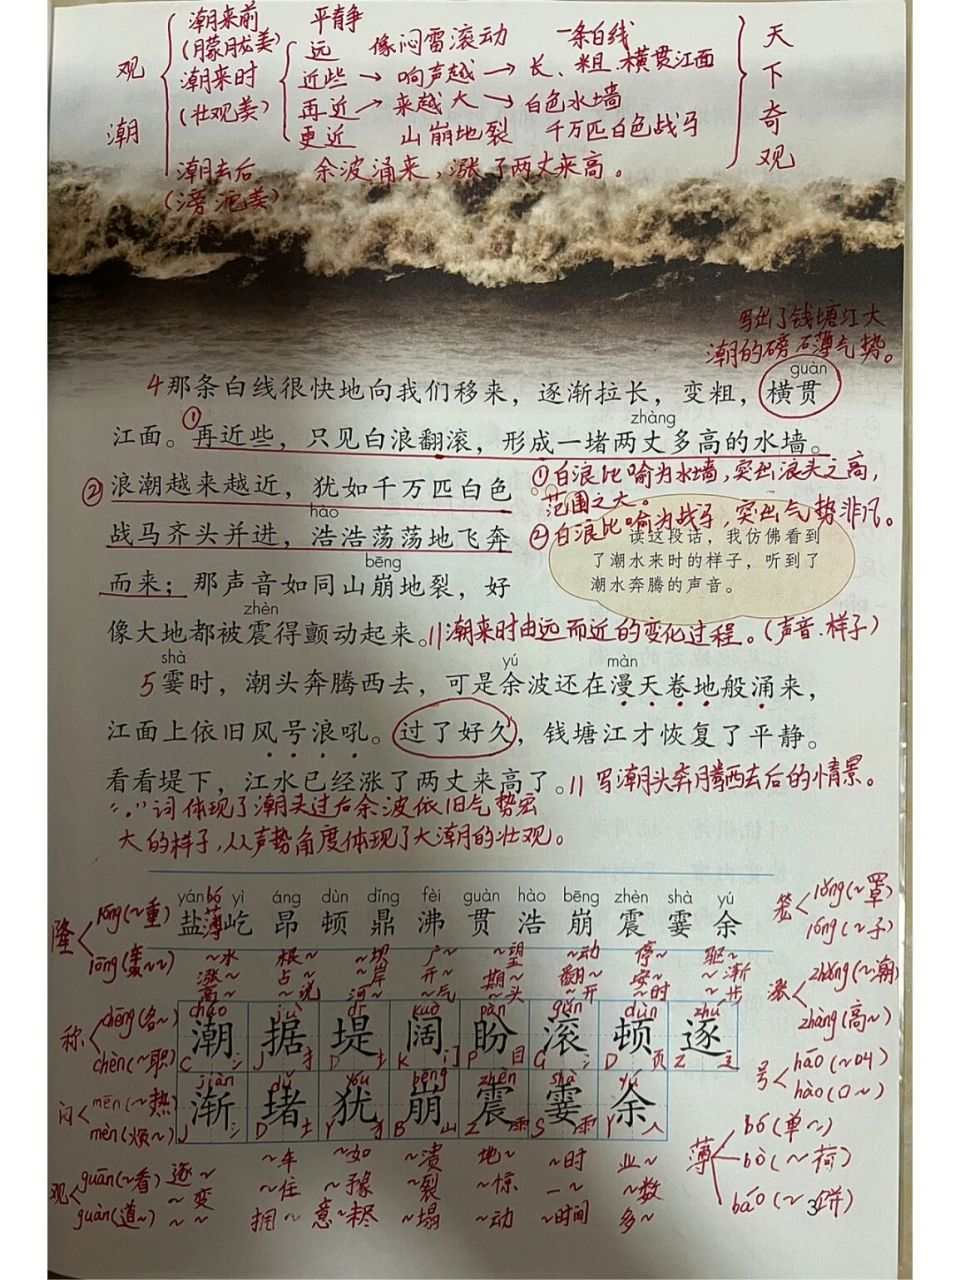 观潮
潮来前 平静
(朦胧美)
潮来时
(壮观美)
远 像闷雷滚动 一条白线
近些→响声越→长、粗、横贯江面
再近→来越大→白色水墙
更近 山崩地裂 千万匹白色战马
潮去后 余波涌来,涨了两丈来高。
(滂沱美)
天下奇观
写出了钱塘江大
潮的磅礴气势。
guàn
4那条白线很快地向我们移来，逐渐拉长，变粗，横贯
zhàng
江面。①再近些，只见白浪翻滚，形成一堵两丈多高的水墙。
②浪潮越来越近，犹如千万匹白色
①白浪比喻为水墙,突出浪头之高,
范围之大。
hào
战马齐头并进，浩浩荡荡地飞奔
②白浪比喻为战马,突出气势非凡。
读这段话，我仿佛看到
了潮水来时的样子，听到了
潮水奔腾的声音。
bēng
而来；那声音如同山崩地裂，好
zhèn
像大地都被震得颤动起来。//潮来时由远而近的变化过程。(声音、样子)
shà yú màn
5霎时，潮头奔腾西去，可是余波还在漫天卷地般涌来，
江面上依旧风号浪吼。过了好久，钱塘江才恢复了平静。
看看堤下，江水已经涨了两丈来高了。//写潮头奔腾西去后的情景。
“.”词体现了潮头过后余波依旧气势宏
大的样子,从声势角度体现了大潮的壮观。
yán bó yì áng dùn dǐng fèi guàn hào bēng zhèn shà yú
盐薄屹昂顿鼎沸贯浩崩震霎余
隆 lóng(~重)
lōng(轰~~)
称 chēng(名~)
chèn(~职)
闷 mēn(~热)
mèn(烦~)
观 guān(~看)
guàn(道~)
笼 lǒng(~罩)
lóng(~子)
涨 zhǎng(~潮)
zhàng(高~)
号 háo(~叫)
hào(口~)
薄 bó(单~)
bò(~荷)
báo(~饼)
~水 根~ ~坝 广~ ~望 ~动 停~ 驱~
涨~ 占~ ~岸 开~ 期~ 翻~ 安~ ~渐
高~ ~说 河~ ~气 ~头 ~开 ~时 ~步
cháo jù dī kuò pàn gǔn dùn zhú
潮据堤阔盼滚顿逐
C氵 J扌 D土 K门 P目 G氵 D页 Z辶
jiàn dǔ yóu bēng zhèn shà yú
渐堵犹崩震霎余
J氵 D土 Y犭 B山 Z雨 S雨 Y人
逐~ ~车 ~如 ~溃 地~ ~时 业~
~变 ~住 ~豫 ~裂 ~惊 一~ ~数
~~ 拥~ 意~未尽 ~塌 ~动 ~时间 多~
3